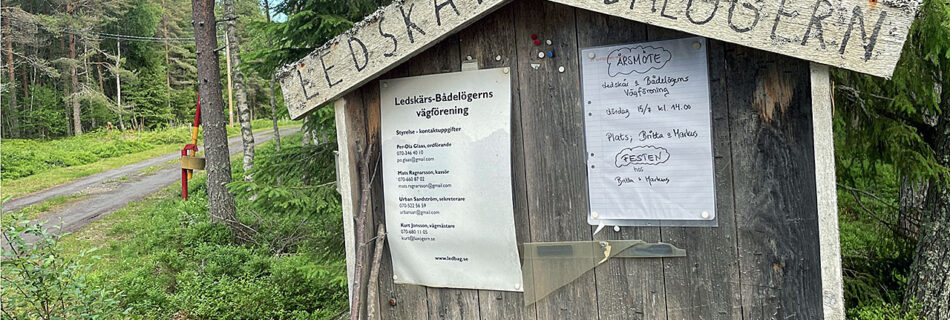 LEDSKÄR BÅDALÖGERN
Ledskärs-Bådelögerns
vägförening
Styrelse - kontaktuppgifter
Per-Ola Glass, ordförande
070-246 40 10
po.glass@gmail.com
Mats Ragnarsson, kassör
070-660 87 02
mats.ragnarsson@gmail.com
Urban Sandström, sekreterare
070-522 56 59
urbansan@gmail.com
Kurt Jonsson, vägmästare
070-680 11 05
www.ledbag.se
ÅRSMÖTE
Ledskär & Bådelögerns
Vägförening
lördag 15/7 kl. 14.00
Plats: Britta & Markus
FESTEN
hos
Britta & Markus